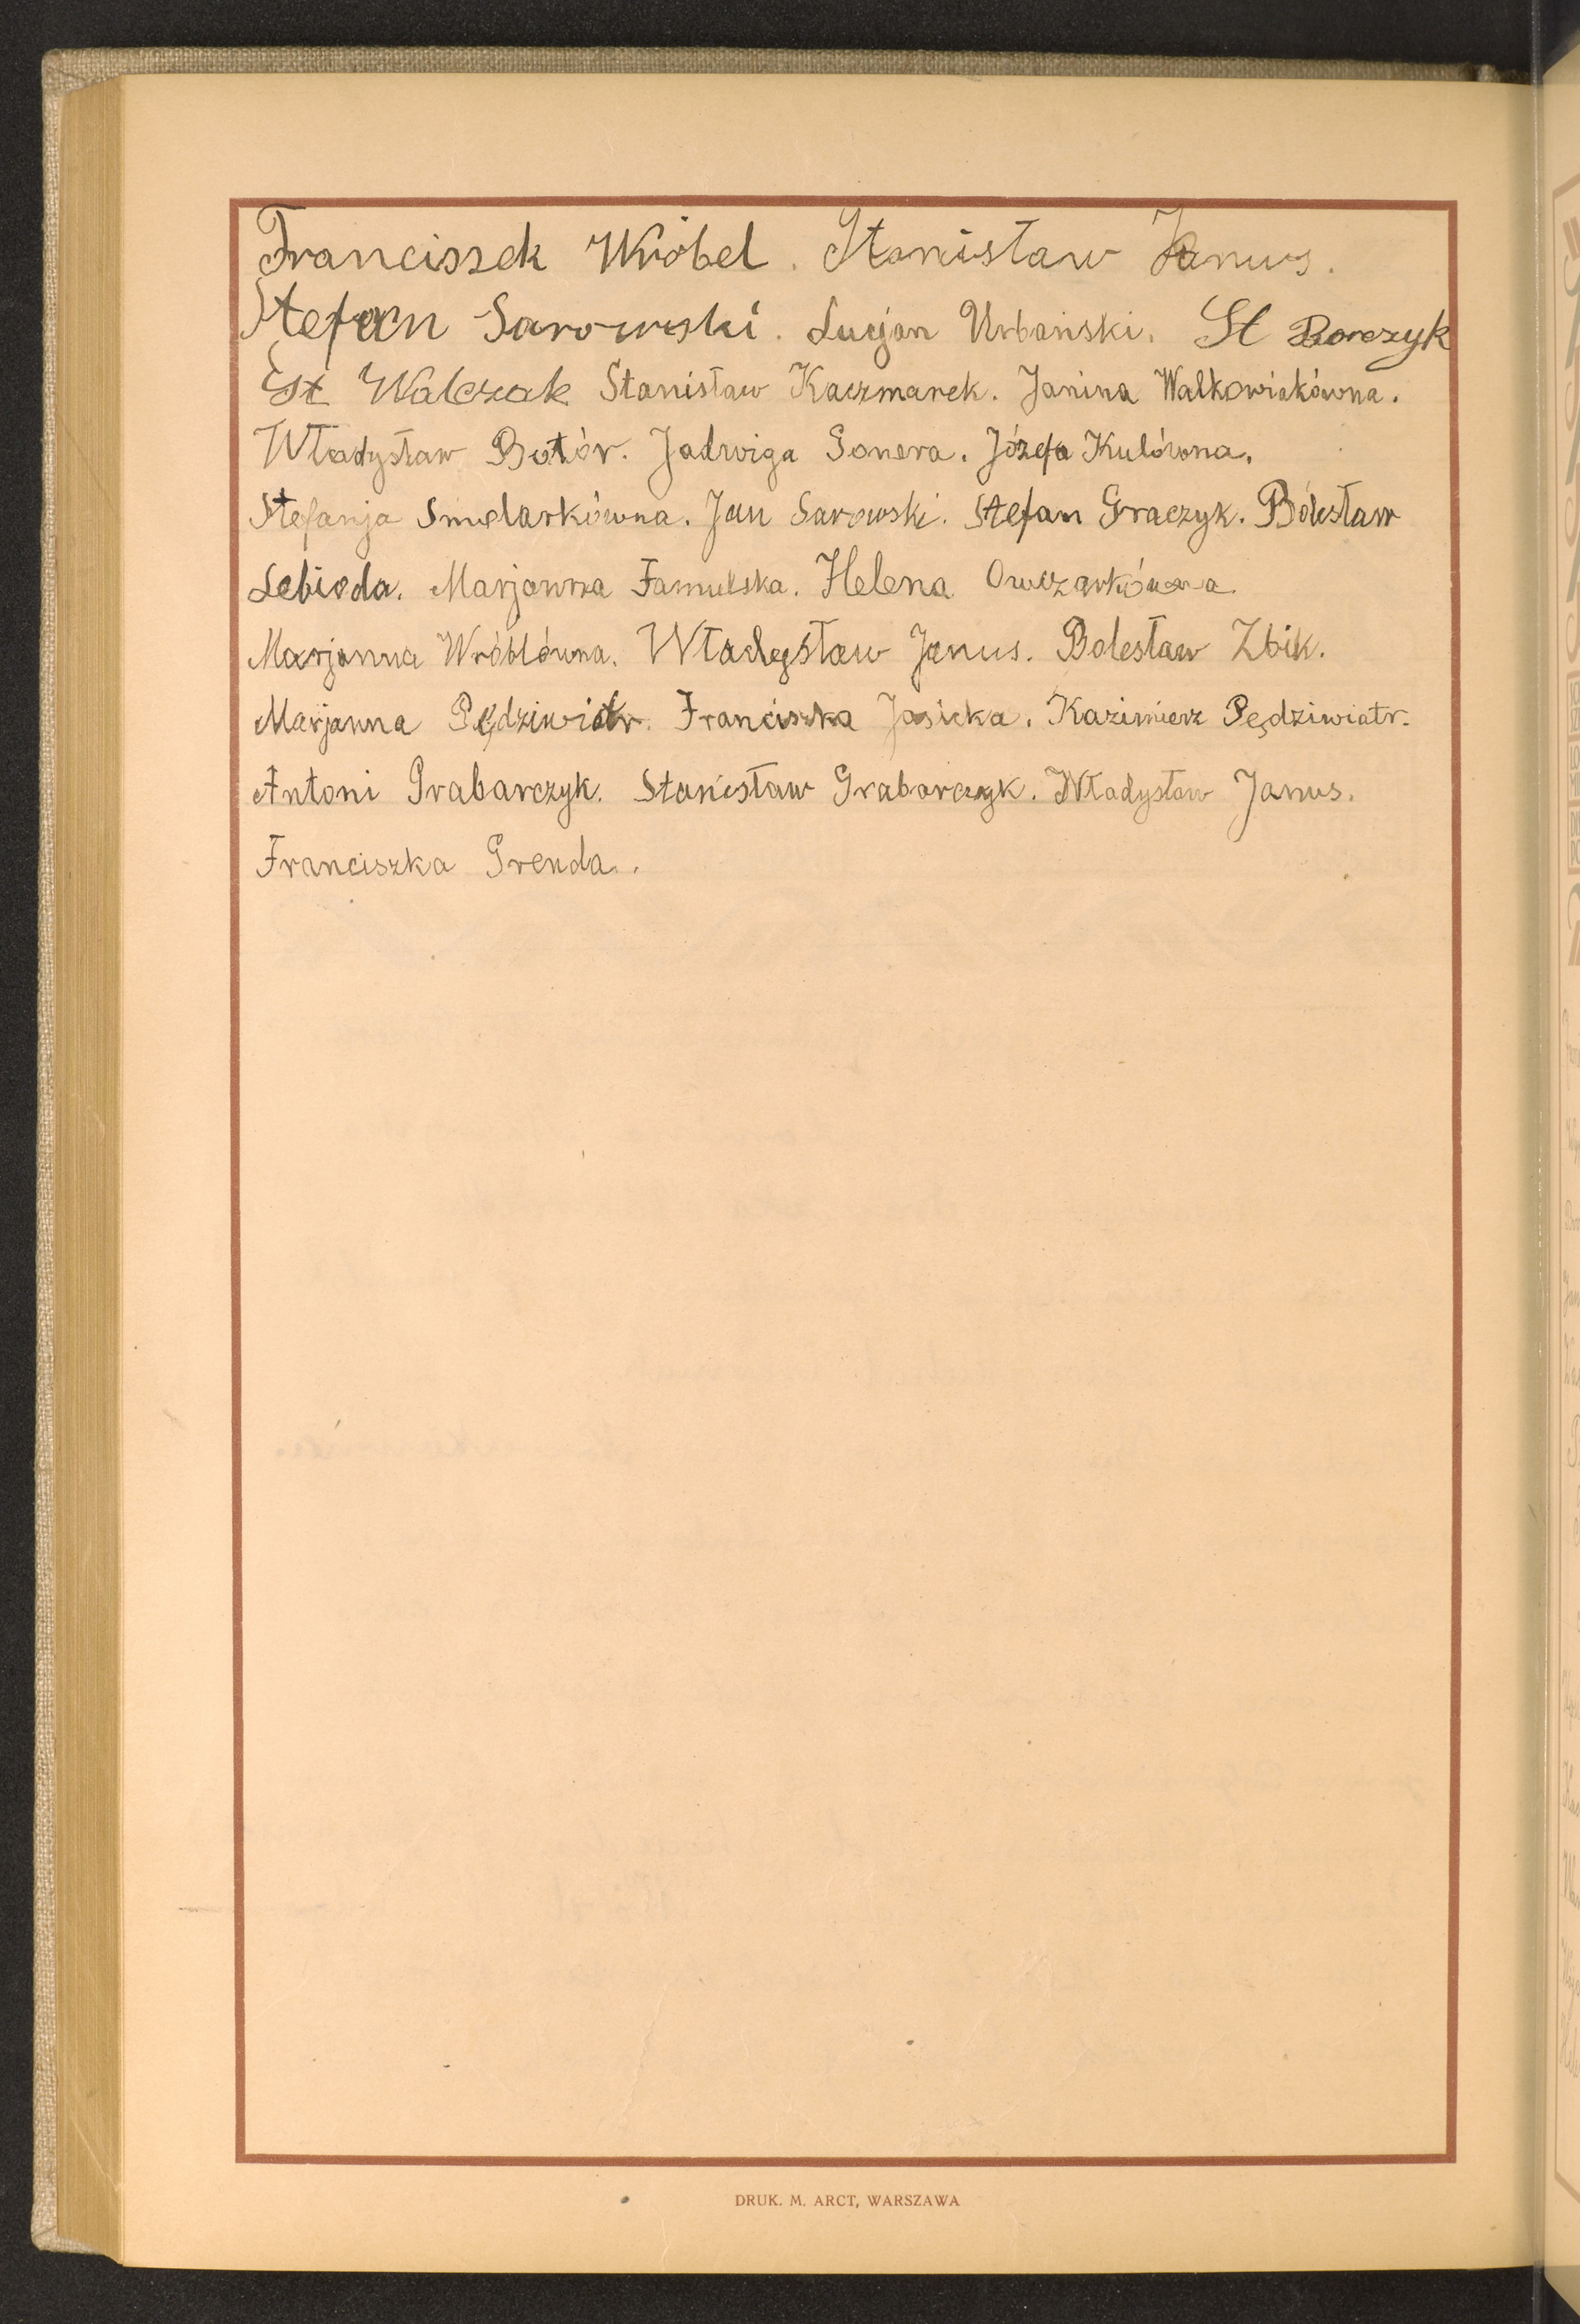 Franciszek Wróbel. Stanisław Janus.
Stefan Sarowski. Lucjan Urbański. St Borczyk
St Walczak Stanisław Kaczmarek. Janina Walkowiakówna.
Władysław Butór. Jadwiga Sonera. Józefa Kulówna.
Stefanja Smelarkówna. Jan Sarowski. Stefan Graczyk. Bolesław
Lebioda. Marjanna Famulska. Helena Owczarkówna
Marjanna Wróblówna. Władysław Janus. Bolesław Zbik.
Marjanna Pędziwiatr. Franciszka Jasicka. Kazimierz Pędziwiatr.
Antoni Grabarczyk. Stanisław Grabarczyk. Władysław Janus.
Franciszka Grenda.
DRUK. M. ARCT, WARSZAWA